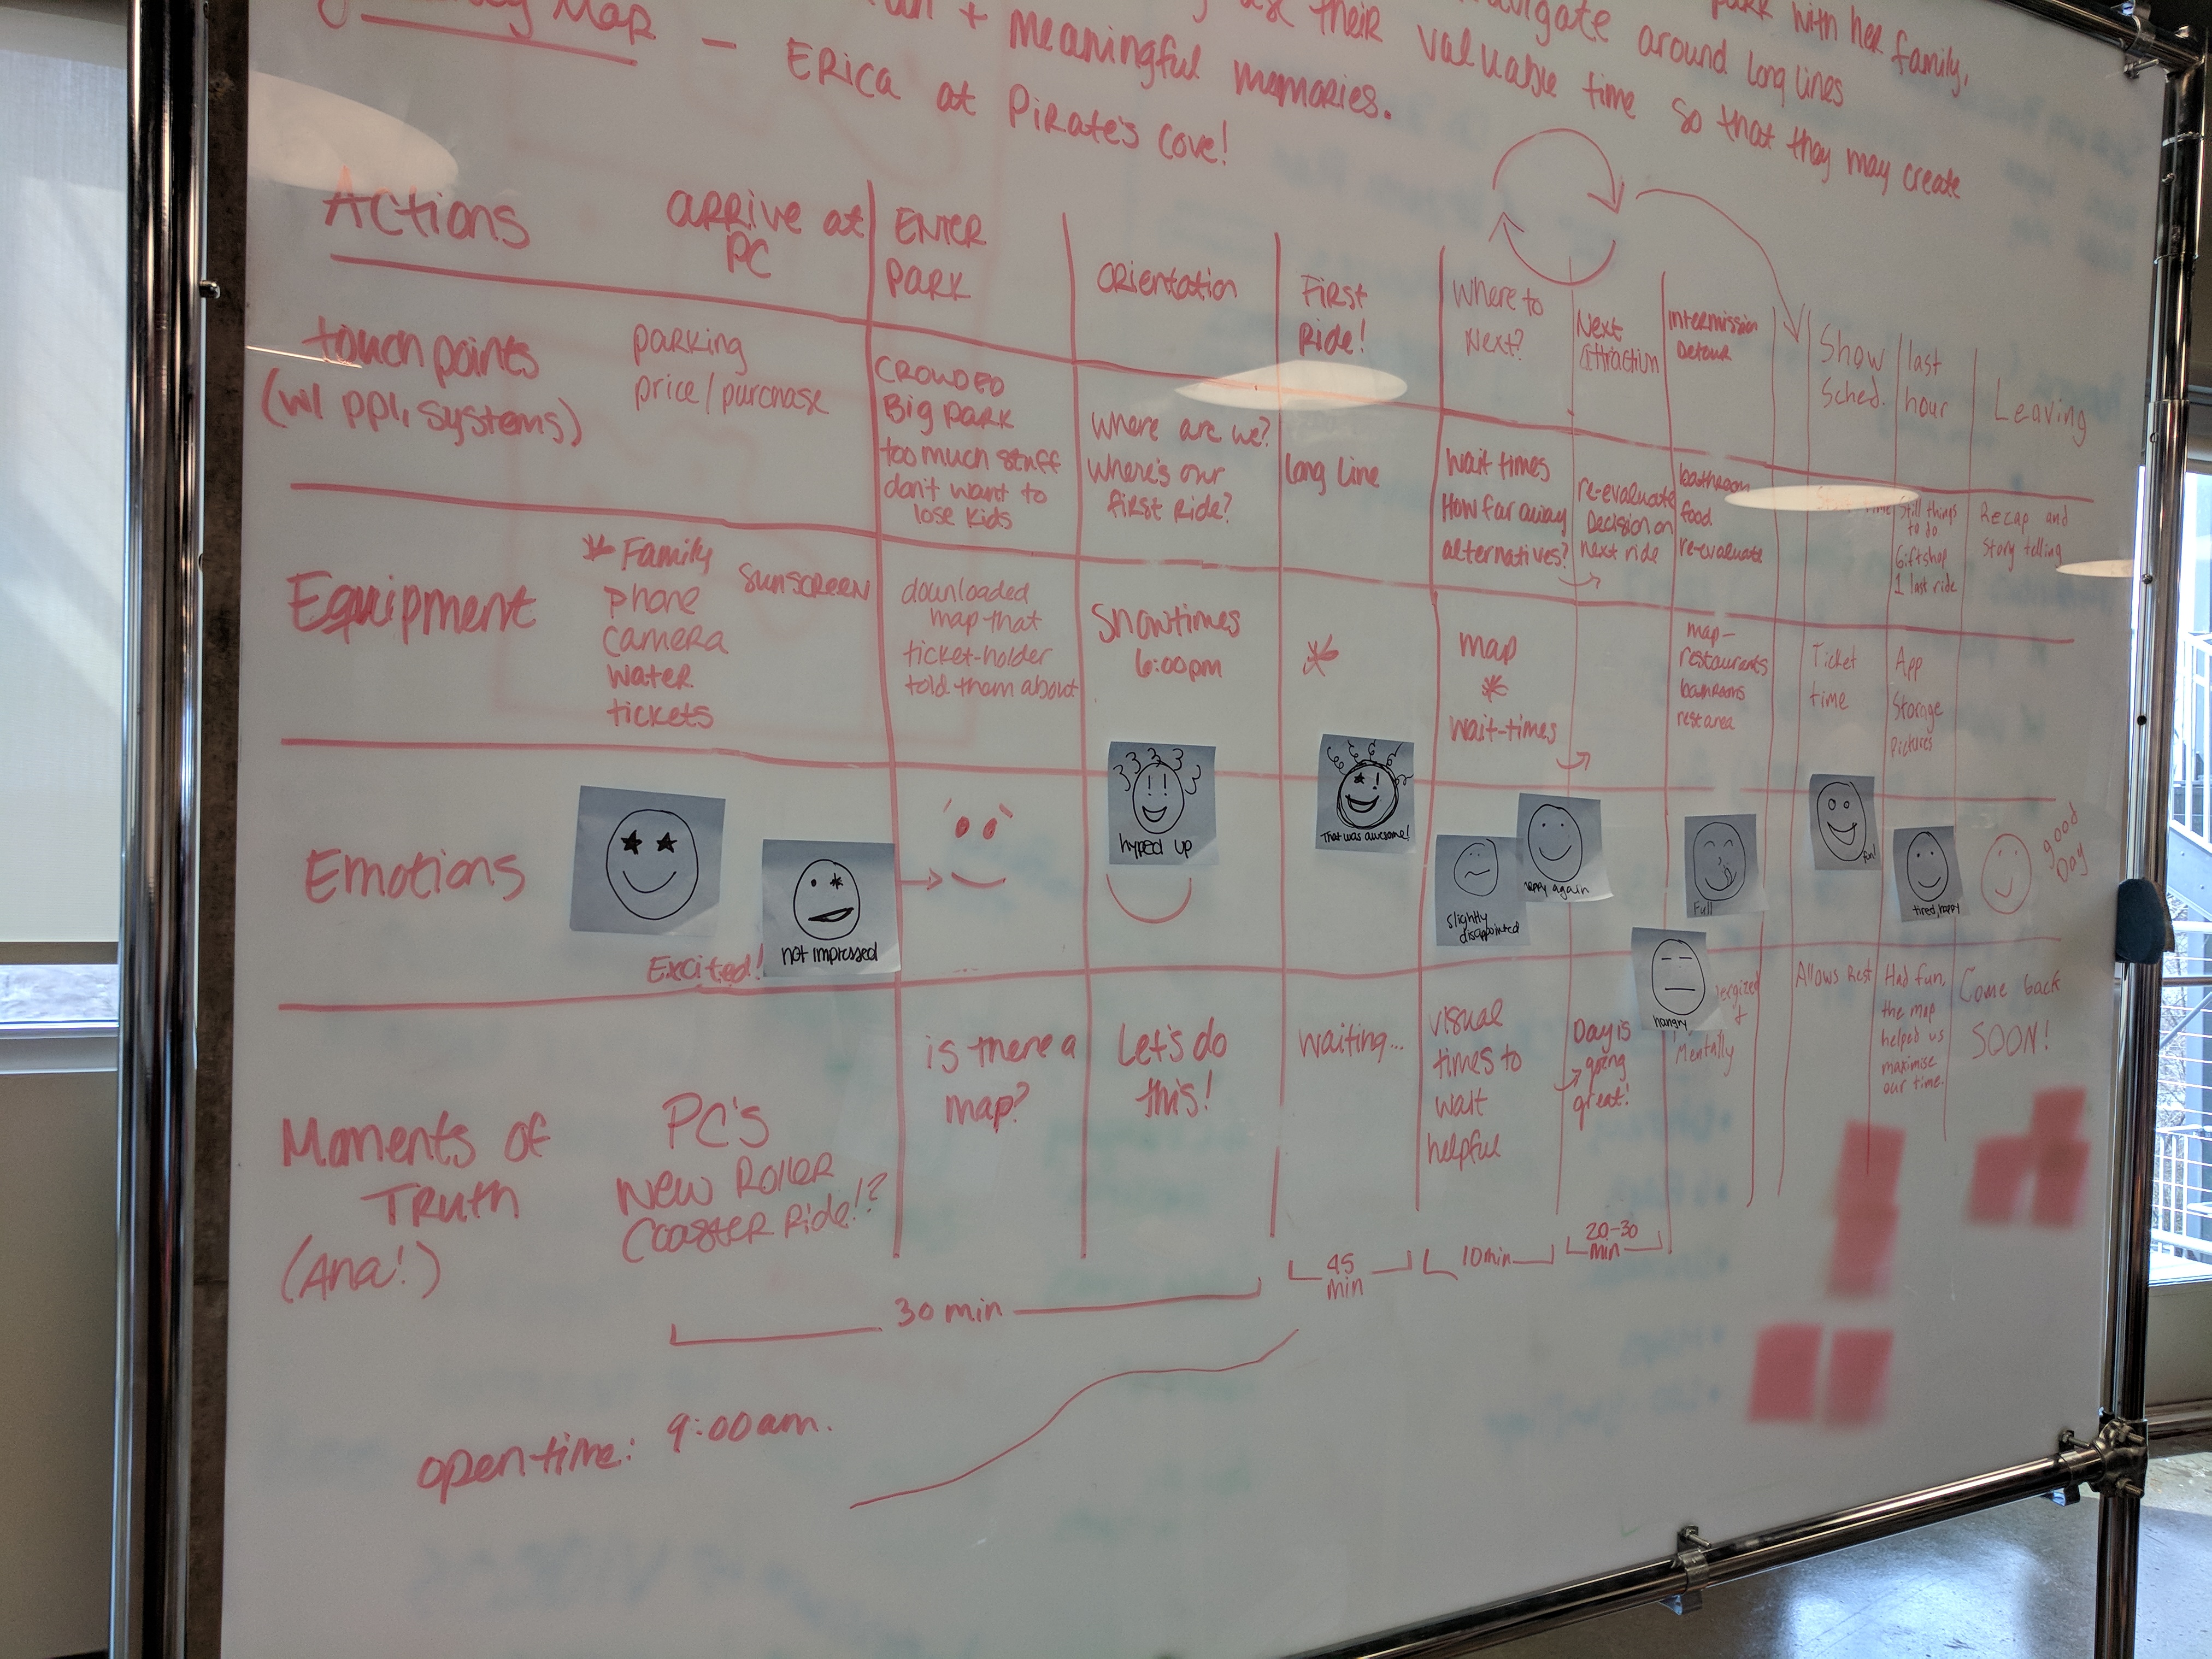 park with her family,
navigate around long lines
their valuable time so that they may create
+ meaningful memories.
Map - Erica at Pirate's Cove!
Actions
arrive at
PC
Enter
Park
Orientation
First
Ride!
Where to
Next?
Next
attraction
Intermission
Detour
Show
Sched.
last
hour
Leaving
touch points
(w/ ppl, systems)
parking
price/purchase
Crowded
Big park
too much stuff
don't want to
lose kids
Where are we?
Where's our
first ride?
long line
wait times
How far away
alternatives?
re-evaluate
Decision on
next ride
bathroom
food
re-evaluate
Still things
to do
Giftshop
1 last ride
Recap and
Story telling
Equipment
* Family
phone
camera
water
tickets
sunscreen
downloaded
map that
ticket-holder
told them about
Showtimes
6:00pm
*
map
*
wait-times
map-
restaurants
bathrooms
rest area
Ticket
time
App
Storage
pictures
Emotions
Excited!
not impressed
hyped up
That was awesome!
slightly
disappointed
happy again
hangry
Full
fun!
tired, happy
good
Day
Moments of
Truth
(Ana!)
PC's
New Roller
Coaster Ride!?
is there a
map?
Let's do
this!
waiting...
visual
times to
wait
helpful
Day is
going
great!
Mentally
Allows Rest
Had fun,
the map
helped us
maximise
our time.
Come back
SOON!
30 min
45
min
10min
20-30
min
open time: 9:00am.